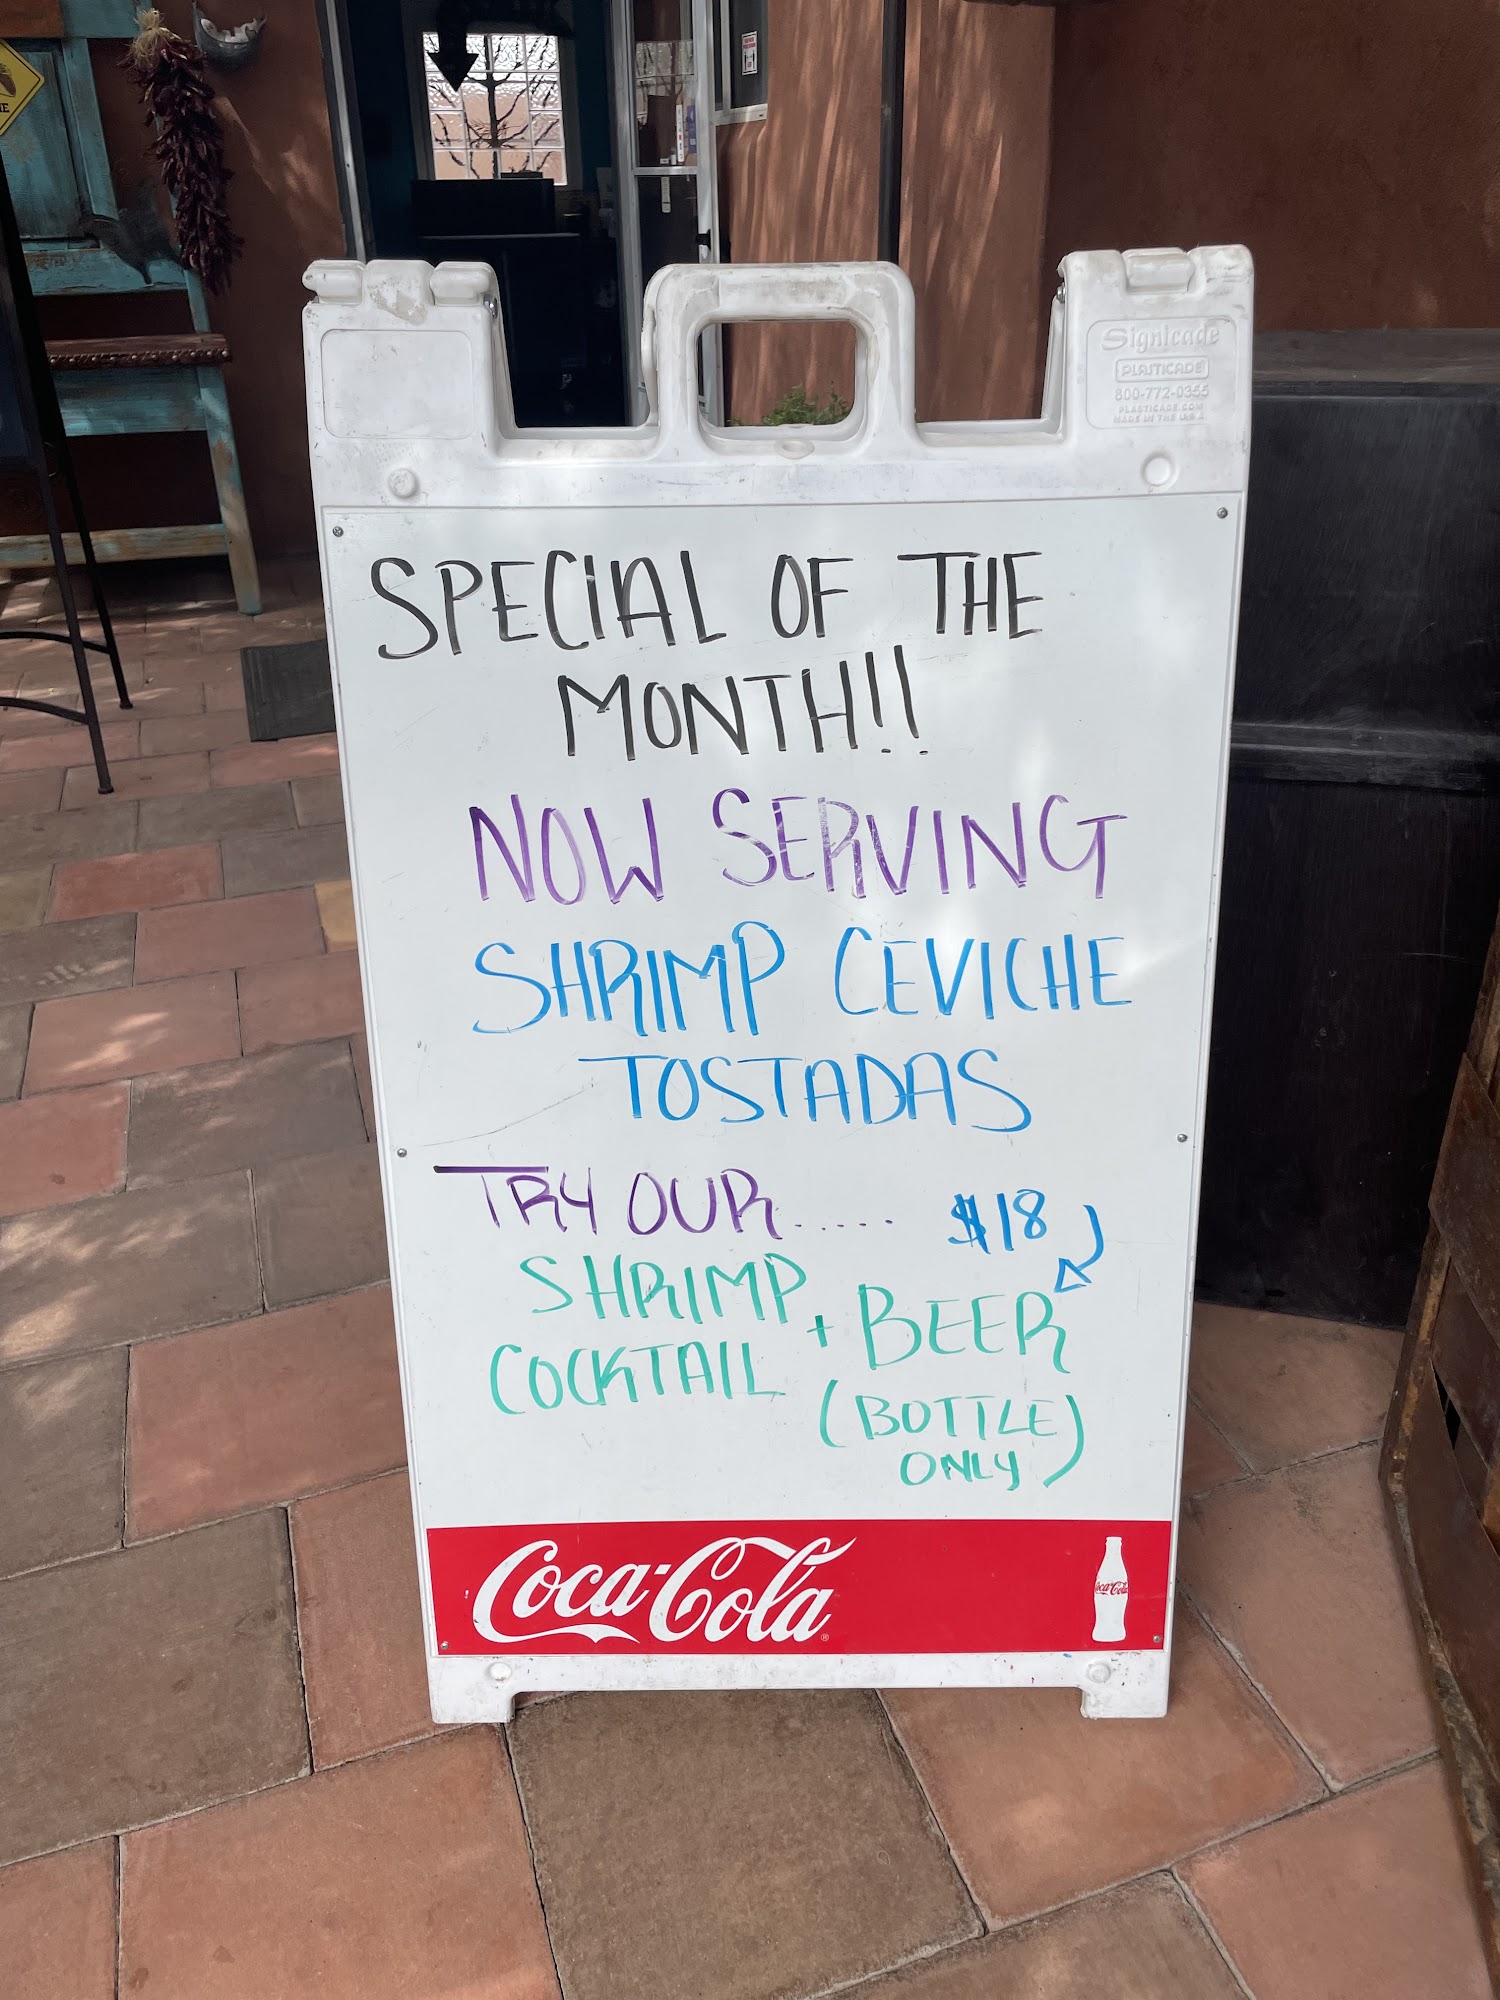 Signicade
PLASTICADE
800-772-0355
PLASTICADE.COM
MADE IN THE U.S.A
SPECIAL OF THE
MONTH!!
NOW SERVING
SHRIMP CEVICHE
TOSTADAS
TRY OUR.....
$18
SHRIMP
COCKTAIL
+ BEER
(BOTTLE)
ONLY
Coca-Cola
Coca-Cola